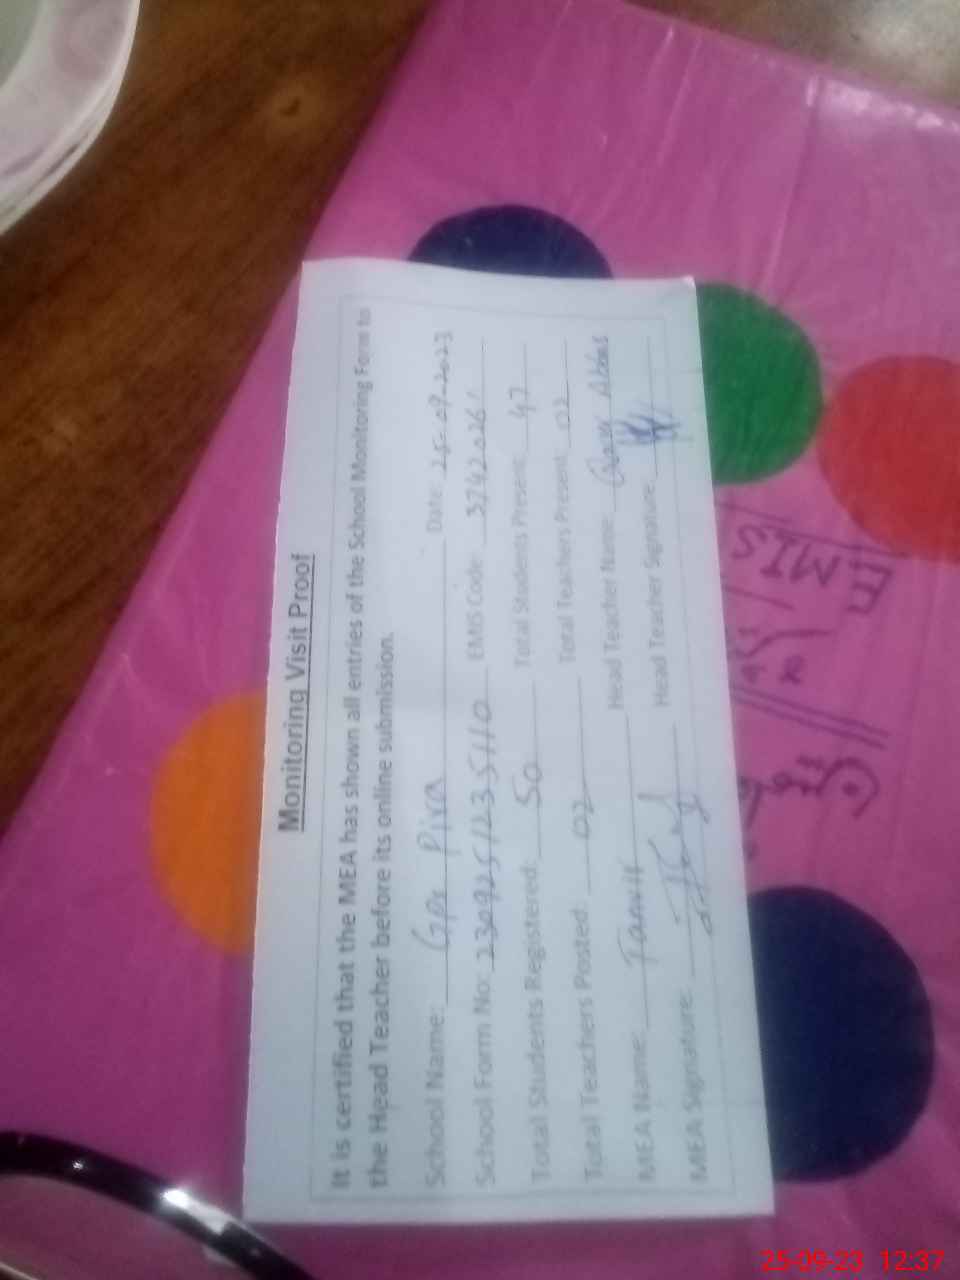 Monitoring Visit Proof
It is certified that the MEA has shown all entries of the School Monitoring Form to
the Head Teacher before its online submission.
School Name: Gps Pira Date: 25-09-2023
School Form No: 230925112351110 EMIS Code:
Total Students Registered: 50 Total Students Present: 47
Total Teachers Posted: 02 Total Teachers Present: 02
MEA Name: Tanvir Head Teacher Name: Abbas
MEA Signature: Head Teacher Signature:
EMIS
25-09-23 12:37